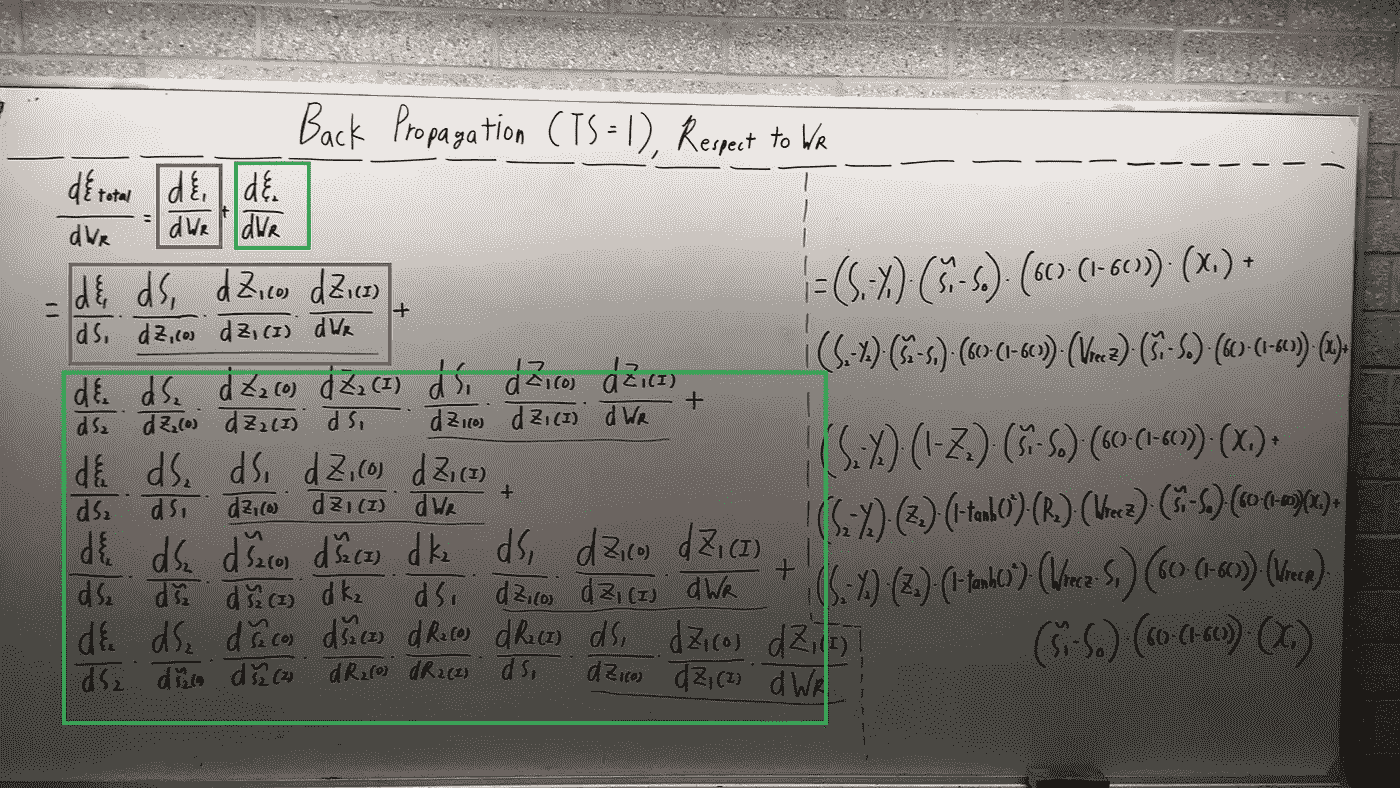 Back Propagation (TS=1), Respect to WR
dξtotal/dWR = dξ1/dWR + dξ2/dWR
= dξ1/dS1 · dS1/dZ1(O) · dZ1(O)/dZ1(I) · dZ1(I)/dWR +
dξ2/dS2 · dS2/dZ2(O) · dZ2(O)/dZ2(I) · dZ2(I)/dS1 · dS1/dZ1(O) · dZ1(O)/dZ1(I) · dZ1(I)/dWR +
dξ2/dS2 · dS2/dS1 · dS1/dZ1(O) · dZ1(O)/dZ1(I) · dZ1(I)/dWR +
dξ2/dS2 · dS2/dS̃2 · dS̃2(O)/dS̃2(I) · dS̃2(I)/dk2 · dk2/dS1 · dS1/dZ1(O) · dZ1(O)/dZ1(I) · dZ1(I)/dWR +
dξ2/dS2 · dS2/dS̃2(O) · dS̃2(O)/dS̃2(I) · dS̃2(I)/dR2(O) · dR2(O)/dR2(I) · dR2(I)/dS1 · dS1/dZ1(O) · dZ1(O)/dZ1(I) · dZ1(I)/dWR
=(S1-Y1)·(S̃1-S0)·(6()·(1-6()))·(X1) +
(S2-Y2)·(S̃2-S1)·(6()·(1-6()))·(Vrecz)·(S̃1-S0)·(6()·(1-6()))·(X1)+
(S2-Y2)·(1-Z2)·(S̃1-S0)·(6()·(1-6()))·(X1)+
(S2-Y2)·(Z2)·(1-tanh()²)·(R2)·(Vrecz)·(S̃1-S0)·(6()·(1-6()))(X1)+
(S2-Y2)·(Z2)·(1-tanh()²)·(Vrecz·S1)(6()·(1-6()))·(VrecR)·
(S̃1-S0)·(6()·(1-6()))·(X1)